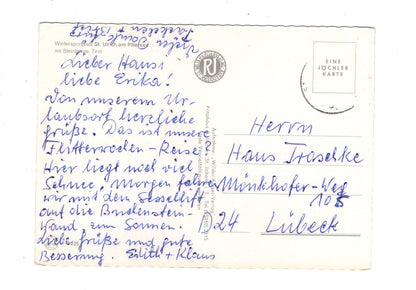 Viele
Dank für
Päckchen + Brief
Wintersportplatz St. Ulrich am Pillersee
mit Steinberge, Tirol
RJ
EINE
JÖCHLER
KARTE
Lieber Hansi
liebe Erika!
Von unserem Ur-
laubsort herzliche
Grüße. Das ist unsere
Flitterwochen-Reise.
Hier liegt noch viel
Schnee. Morgen fahren
wir mit dem Sessellift
auf die Buchenstein-
Wand, zum Sonnen.
Liebe Grüße und gute
Besserung. Edith + Klaus
Herrn
Hans Traschke
Mönkhofer-Weg
108
24 Lübeck